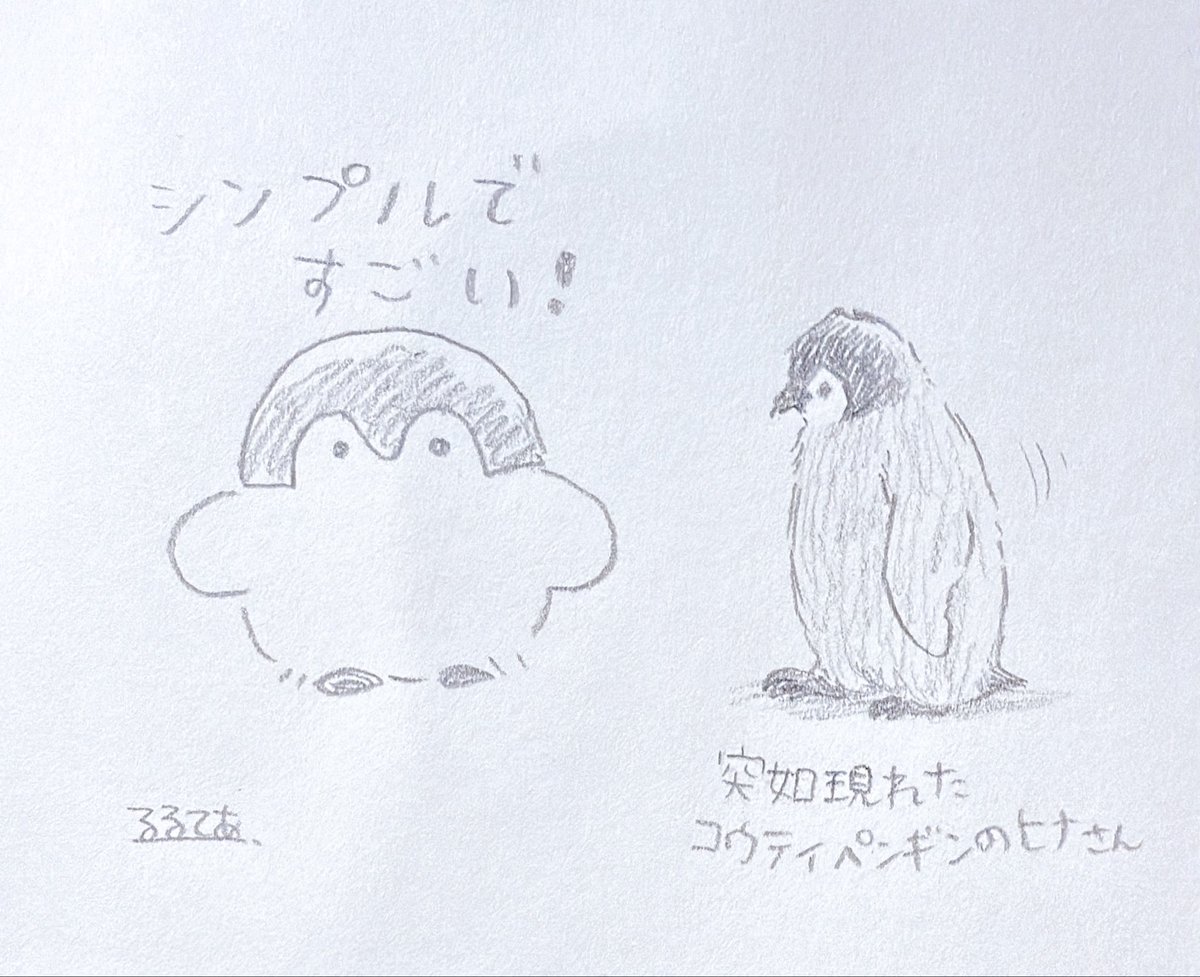 シンプルで
すごい!
るるてあ、
突如現れた
コウティペンギンのヒナさん